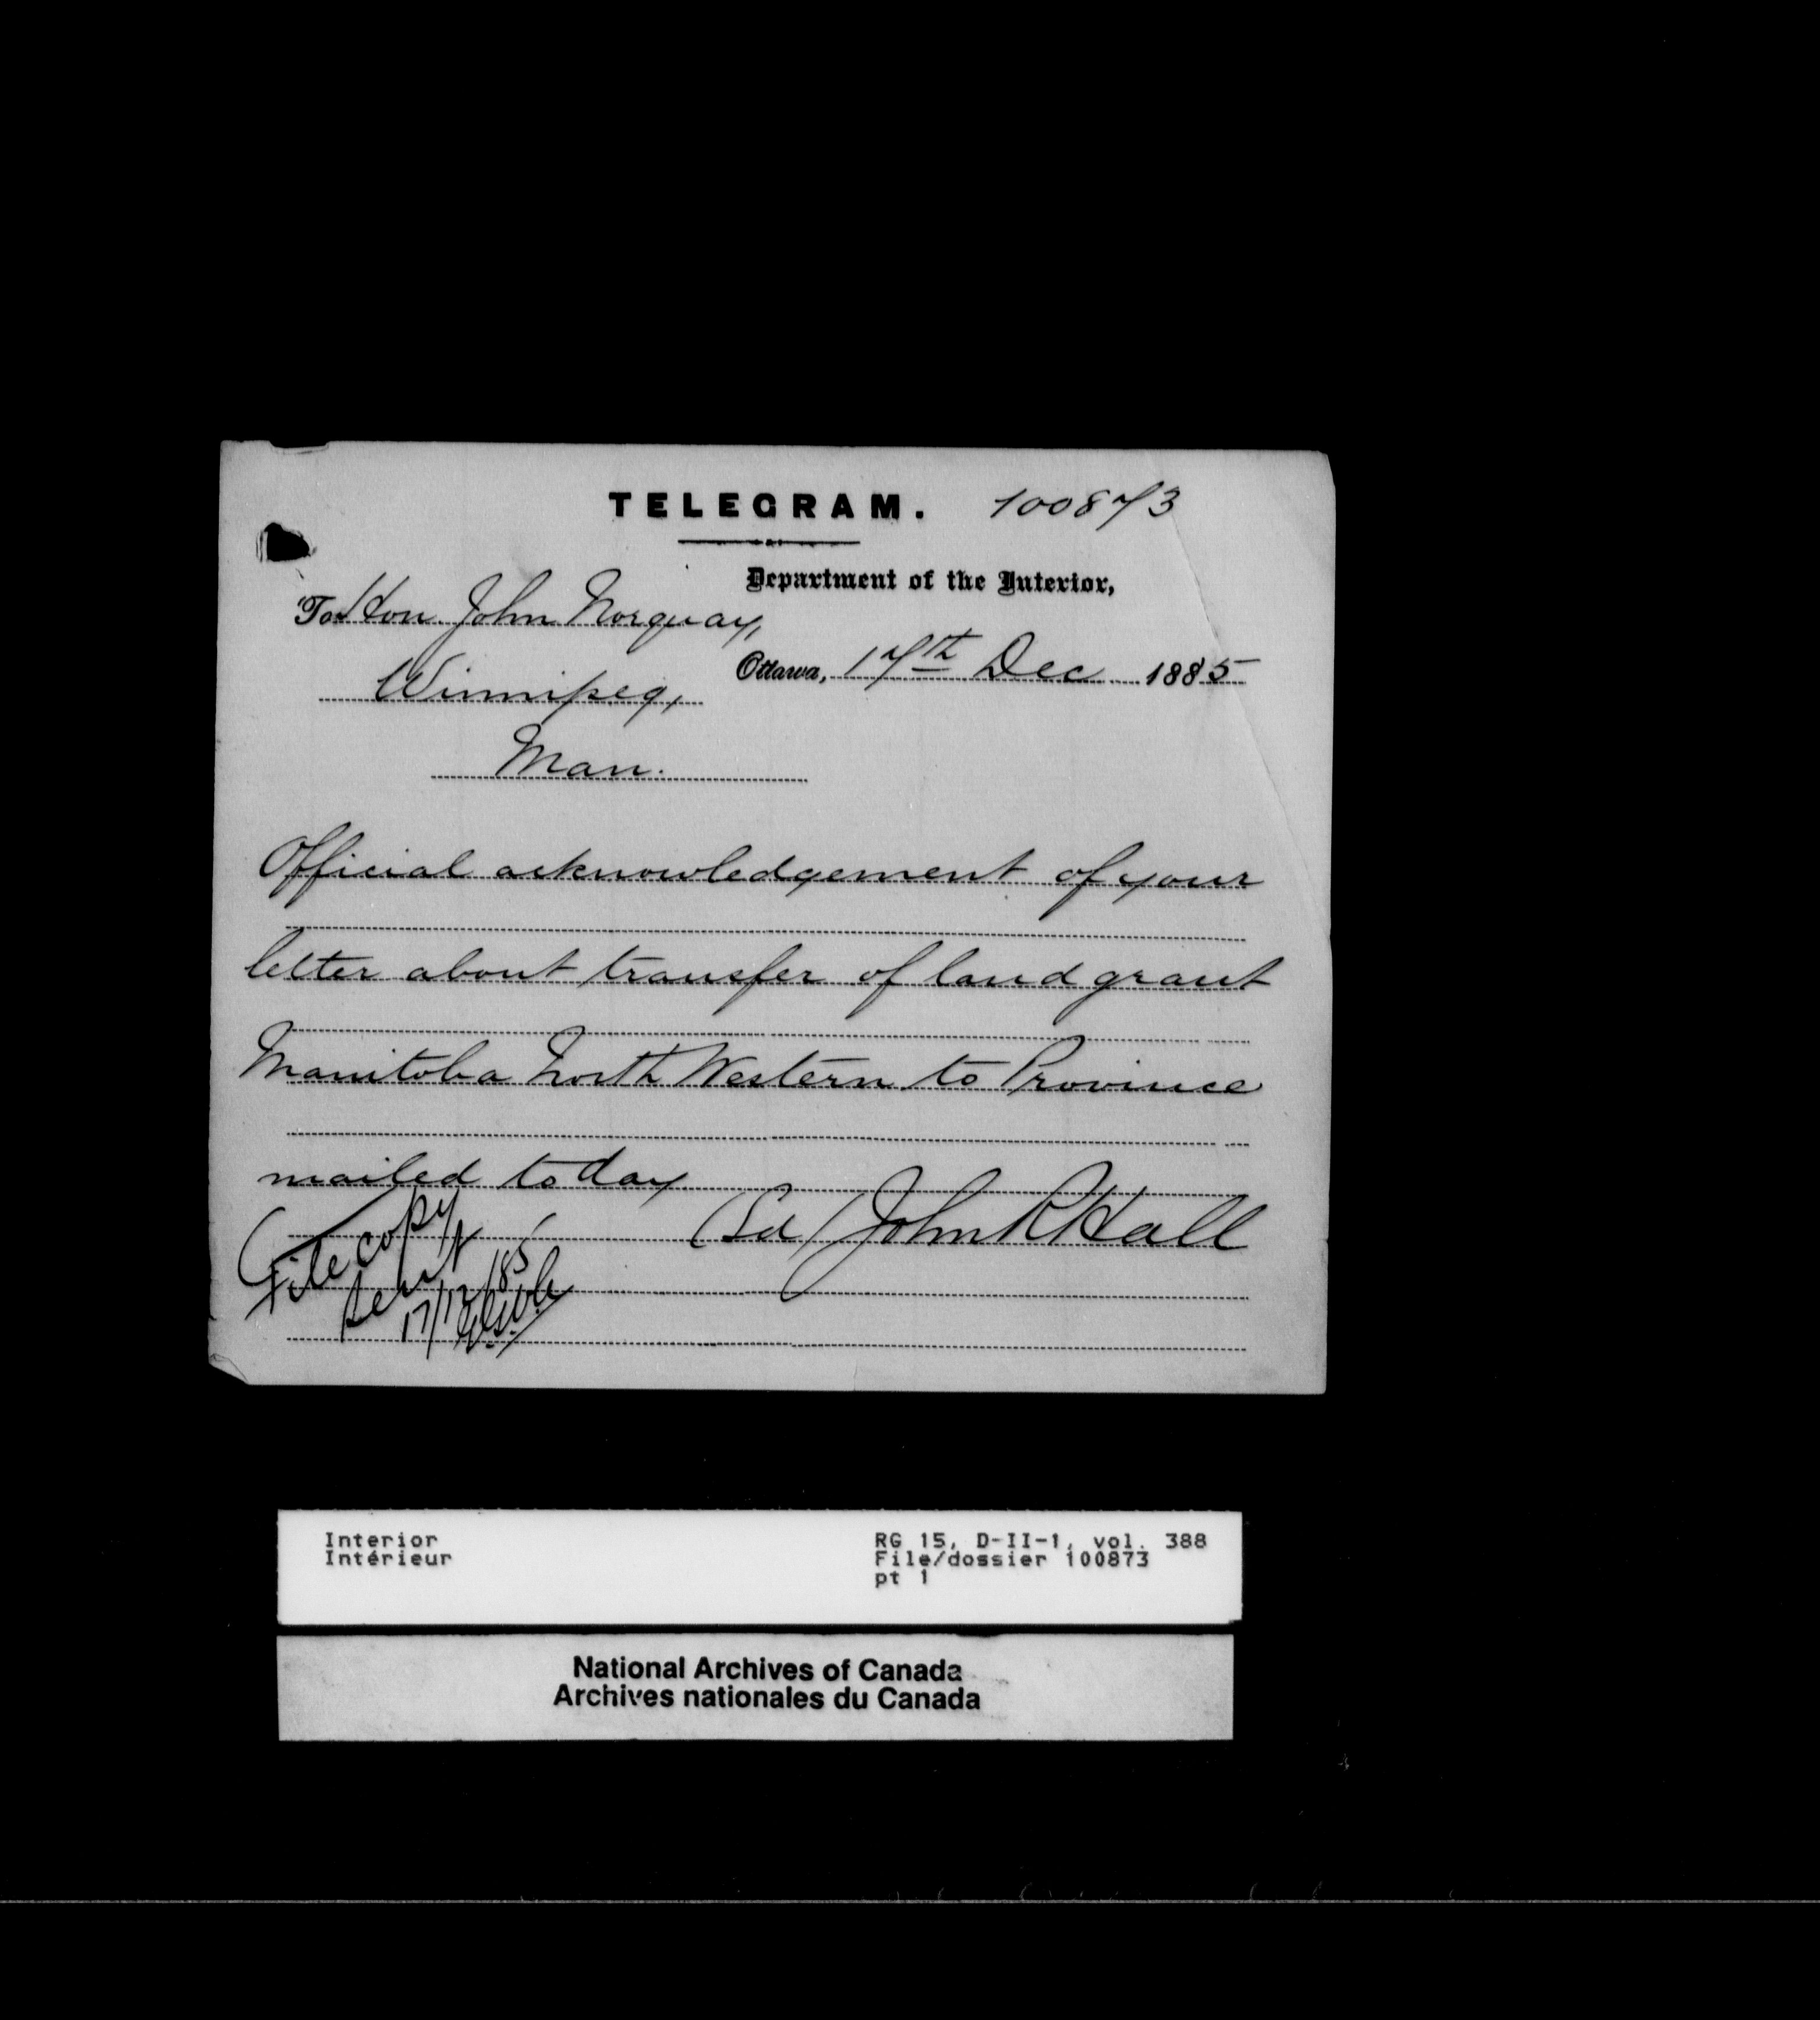 TELEGRAM. 100873
Department of the Interior,
To Hon. John Norquay,
Ottawa, 17th Dec 1885
Winnipeg,
Man.
Official acknowledgement of your
letter about transfer of land grant
Manitoba North Western to Province
mailed today
(Sd) John R Hall
File copy
sent
17/12/85
Interior
Intérieur
RG 15, D-II-1, vol. 388
File/dossier 100873
pt 1
National Archives of Canada
Archives nationales du Canada